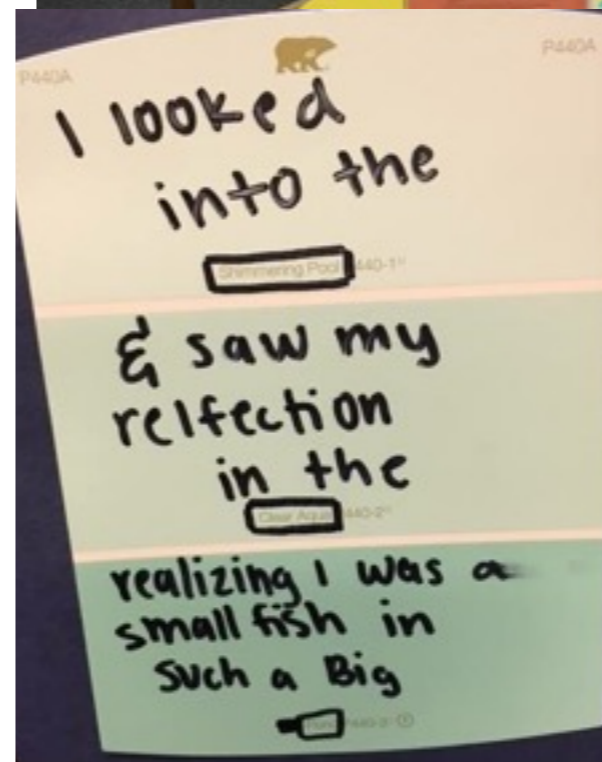 P440A P440A
I looked
into the
Shimmering Pool 440-1
& saw my
relfection
in the
Clear Aqua 440-2
realizing I was a
small fish in
such a Big
P440-3